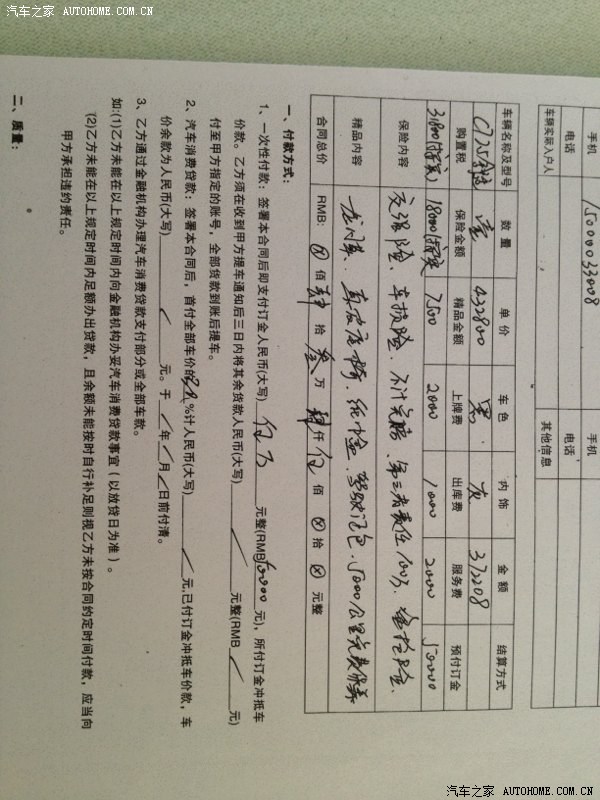 汽车之家 AUTOHOME.COM.CN
手机 手机
电话 电话
车辆实际入户人 其他信息
车辆名称及型号 数量 单价 车色 内饰 金额 结算方式
壹 432800 黑 372208
购置税 保险金额 精品金额 上牌费 出库费 服务费 预付订金
7500 2000 1000 2000 50000
保险内容 交强险、车损险、不计免赔、第三者责任100万、盗抢险.
精品内容 5000公里免费保养
合同总价 RMB: ⊗ 佰 肆 拾 叁 万 肆 仟 伍 佰 ⊗ 拾 ⊗ 元整
一、付款方式：
1、一次性付款：签署本合同后即支付订金人民币(大写) 伍万 元整(RMB 50000 元)，所付订金冲抵车
价款。乙方须在收到甲方提车通知后三日内将其余贷款人民币(大写) 元整(RMB 元)
付至甲方指定的账号，全部货款到账后提车。
2、汽车消费贷款：签署本合同后，首付全部车价的 %计人民币(大写) 元,已付订金冲抵车价款，车
价余款为人民币(大写) 元。于 年 月 日前付清。
3、乙方通过金融机构办理汽车消费贷款支付部分或全部车款。
如:(1)乙方未能在以上规定时间内向金融机构办妥汽车消费贷款事宜（以放贷日为准）。
(2)乙方未能在以上规定时间内足额办出贷款，且余额未能按时自行补足则视乙方未按合同约定时间付款，应当向
甲方承担违约责任。
二、质量：
汽车之家 AUTOHOME.COM.CN